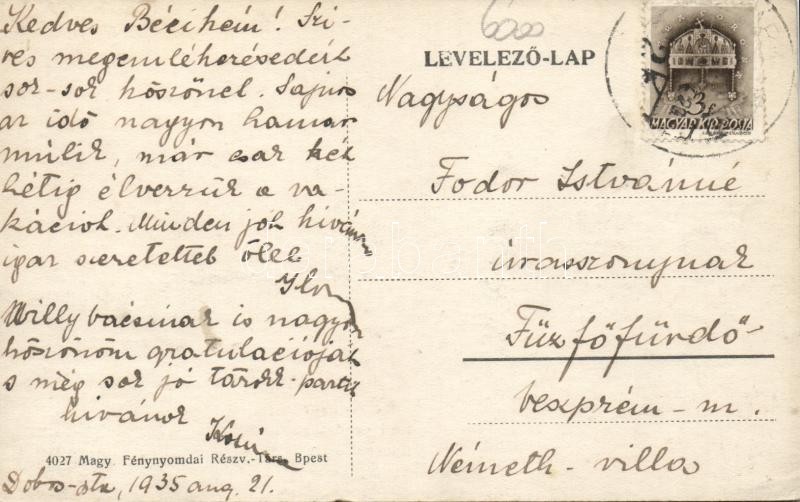 Kedves Bécikém! Szi-
ves megemlékezésedért
sok-sok köszönet. Sajnos
az idő nagyon hamar
múlik, már csak két
hétig élvezzük a va-
kációt. Minden jót kíván
igaz szeretettel ölel
Willy bácsinak is nagyon
köszönöm gratulációját
s még sok jó tarokk-partit
kívánok
4027 Magy. Fénynyomdai Részv.-Társ. Bpest
1935 aug. 21.
6000
LEVELEZŐ-LAP
MAGYAR KIR. POSTA
3f
Nagyságos
Fodor Istvánné
úrasszonynak
Fűzfőfürdő-
veszprém-m.
Németh-villa